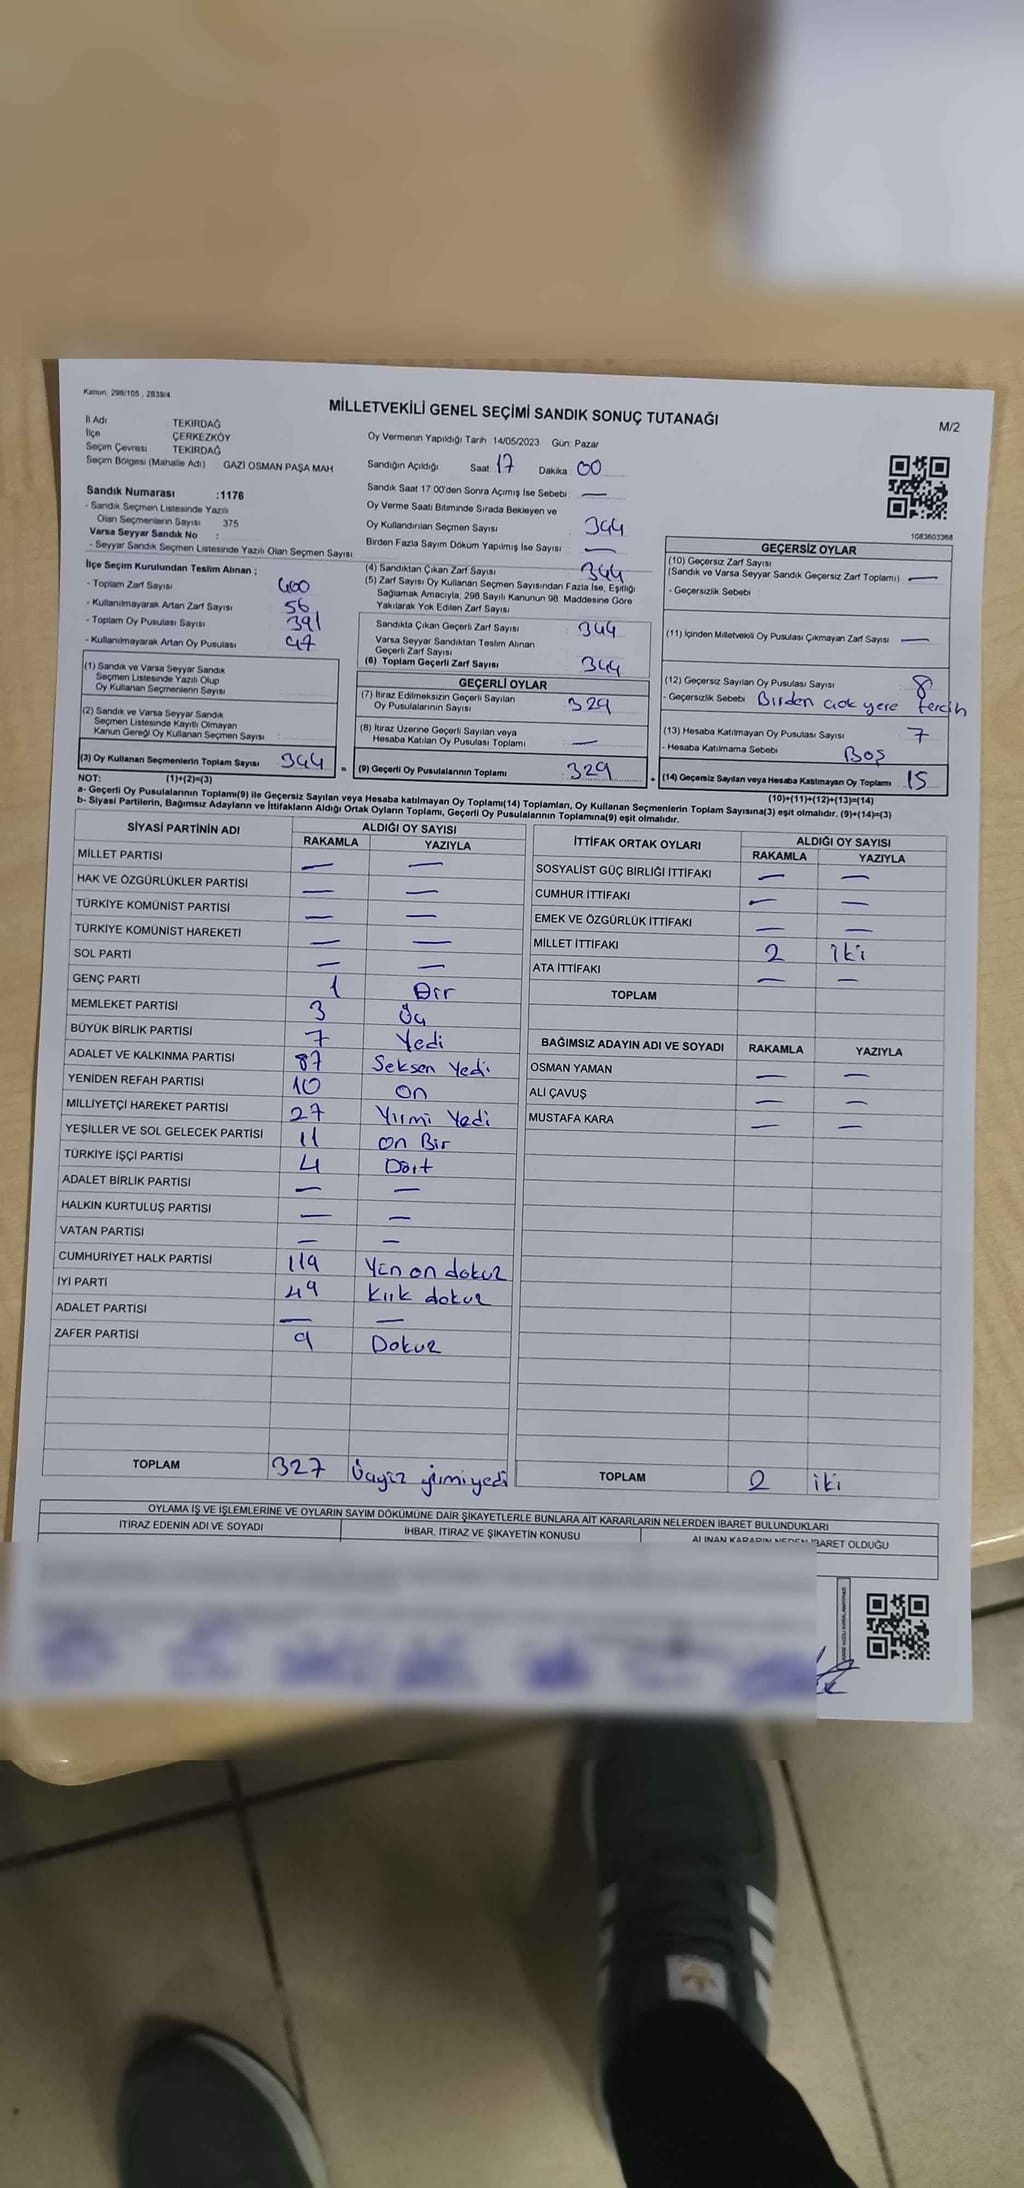 Kanun: 298/105 , 2839/4
MİLLETVEKİLİ GENEL SEÇİMİ SANDIK SONUÇ TUTANAĞI
M/2
İl Adı TEKİRDAĞ
İlçe ÇERKEZKÖY
Seçim Çevresi TEKİRDAĞ
Seçim Bölgesi (Mahalle Adı) GAZİ OSMAN PAŞA MAH
Oy Vermenin Yapıldığı Tarih : 14/05/2023 Gün: Pazar
Sandığın Açıldığı Saat 17 Dakika 00
Sandık Saat 17:00'den Sonra Açımış İse Sebebi : —
Oy Verme Saati Bitiminde Sırada Bekleyen ve
Oy Kullandırılan Seçmen Sayısı 344
Birden Fazla Sayım Döküm Yapılmış İse Sayısı —
Sandık Numarası :1176
- Sandık Seçmen Listesinde Yazılı
Olan Seçmenlerin Sayısı 375
Varsa Seyyar Sandık No :
- Seyyar Sandık Seçmen Listesinde Yazılı Olan Seçmen Sayısı
İlçe Seçim Kurulundan Teslim Alınan ;
- Toplam Zarf Sayısı 400
- Kullanılmayarak Artan Zarf Sayısı 56
- Toplam Oy Pusulası Sayısı 391
- Kullanılmayarak Artan Oy Pusulası 47
(1) Sandık ve Varsa Seyyar Sandık
Seçmen Listesinde Yazılı Olup
Oy Kullanan Seçmenlerin Sayısı
(2) Sandık ve Varsa Seyyar Sandık
Seçmen Listesinde Kayıtlı Olmayan
Kanun Gereği Oy Kullanan Seçmen Sayısı :
(3) Oy Kullanan Seçmenlerin Toplam Sayısı 344 =
(4) Sandıktan Çıkan Zarf Sayısı 344
(5) Zarf Sayısı Oy Kullanan Seçmen Sayısından Fazla İse, Eşitliği
Sağlamak Amacıyla, 298 Sayılı Kanunun 98. Maddesine Göre
Yakılarak Yok Edilen Zarf Sayısı
Sandıkta Çıkan Geçerli Zarf Sayısı 344
Varsa Seyyar Sandıktan Teslim Alınan
Geçerli Zarf Sayısı
(6) Toplam Geçerli Zarf Sayısı 344
GEÇERLİ OYLAR
(7) İtiraz Edilmeksizin Geçerli Sayılan
Oy Pusulalarının Sayısı 329
(8) İtiraz Üzerine Geçerli Sayılan veya
Hesaba Katılan Oy Pusulası Toplamı —
(9) Geçerli Oy Pusulalarının Toplamı 329 +
1083603368
GEÇERSİZ OYLAR
(10) Geçersiz Zarf Sayısı
(Sandık ve Varsa Seyyar Sandık Geçersiz Zarf Toplamı) —
- Geçersizlik Sebebi
(11) İçinden Milletvekili Oy Pusulası Çıkmayan Zarf Sayısı —
(12) Geçersiz Sayılan Oy Pusulası Sayısı 8
- Geçersizlik Sebebi Birden çok yere tercih
(13) Hesaba Katılmayan Oy Pusulası Sayısı 7
- Hesaba Katılmama Sebebi Boş
(14) Geçersiz Sayılan veya Hesaba Katılmayan Oy Toplamı 15
NOT: (1)+(2)=(3) (10)+(11)+(12)+(13)=(14)
a- Geçerli Oy Pusulalarının Toplamı(9) ile Geçersiz Sayılan veya Hesaba katılmayan Oy Toplamı(14) Toplamları, Oy Kullanan Seçmenlerin Toplam Sayısına(3) eşit olmalıdır. (9)+(14)=(3)
b- Siyasi Partilerin, Bağımsız Adayların ve İttifakların Aldığı Ortak Oyların Toplamı, Geçerli Oy Pusulalarının Toplamına(9) eşit olmalıdır.
SİYASİ PARTİNİN ADI ALDIĞI OY SAYISI
RAKAMLA YAZIYLA
MİLLET PARTİSİ — —
HAK VE ÖZGÜRLÜKLER PARTİSİ — —
TÜRKİYE KOMÜNİST PARTİSİ — —
TÜRKİYE KOMÜNİST HAREKETİ — —
SOL PARTİ — —
GENÇ PARTİ 1 Bir
MEMLEKET PARTİSİ 3 Üç
BÜYÜK BİRLİK PARTİSİ 7 Yedi
ADALET VE KALKINMA PARTİSİ 87 Seksen Yedi
YENİDEN REFAH PARTİSİ 10 On
MİLLİYETÇİ HAREKET PARTİSİ 27 Yirmi Yedi
YEŞİLLER VE SOL GELECEK PARTİSİ 11 On Bir
TÜRKİYE İŞÇİ PARTİSİ 4 Dört
ADALET BİRLİK PARTİSİ — —
HALKIN KURTULUŞ PARTİSİ — —
VATAN PARTİSİ — —
CUMHURİYET HALK PARTİSİ 119 Yüz on dokuz
İYİ PARTİ 49 Kırk dokuz
ADALET PARTİSİ — —
ZAFER PARTİSİ 9 Dokuz
TOPLAM 327 Üçyüz yirmiyedi
İTTİFAK ORTAK OYLARI ALDIĞI OY SAYISI
RAKAMLA YAZIYLA
SOSYALİST GÜÇ BİRLİĞİ İTTİFAKI — —
CUMHUR İTTİFAKI — —
EMEK VE ÖZGÜRLÜK İTTİFAKI — —
MİLLET İTTİFAKI 2 İki
ATA İTTİFAKI — —
TOPLAM
BAĞIMSIZ ADAYIN ADI VE SOYADI RAKAMLA YAZIYLA
OSMAN YAMAN — —
ALİ ÇAVUŞ — —
MUSTAFA KARA — —
TOPLAM 2 iki
OYLAMA İŞ VE İŞLEMLERİNE VE OYLARIN SAYIM DÖKÜMÜNE DAİR ŞİKAYETLERLE BUNLARA AİT KARARLARIN NELERDEN İBARET BULUNDUKLARI
İTİRAZ EDENİN ADI VE SOYADI
İHBAR, İTİRAZ VE ŞİKAYETİN KONUSU
ALINAN KARARIN NEDEN İBARET OLDUĞU